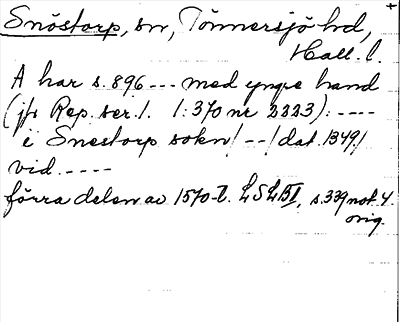 Snöstorp, sn, Tönnersjö hd,
Hall. l.
A har s. 896 --- med yngre hand
(jfr Rep. ser. 1. 1:370 nr 2223): ----
i Snestorp sokn / -- / dat. 1349 /
vid ----
förra delen av 1570-t. LSLBI, s. 339 not. 4.
orig.